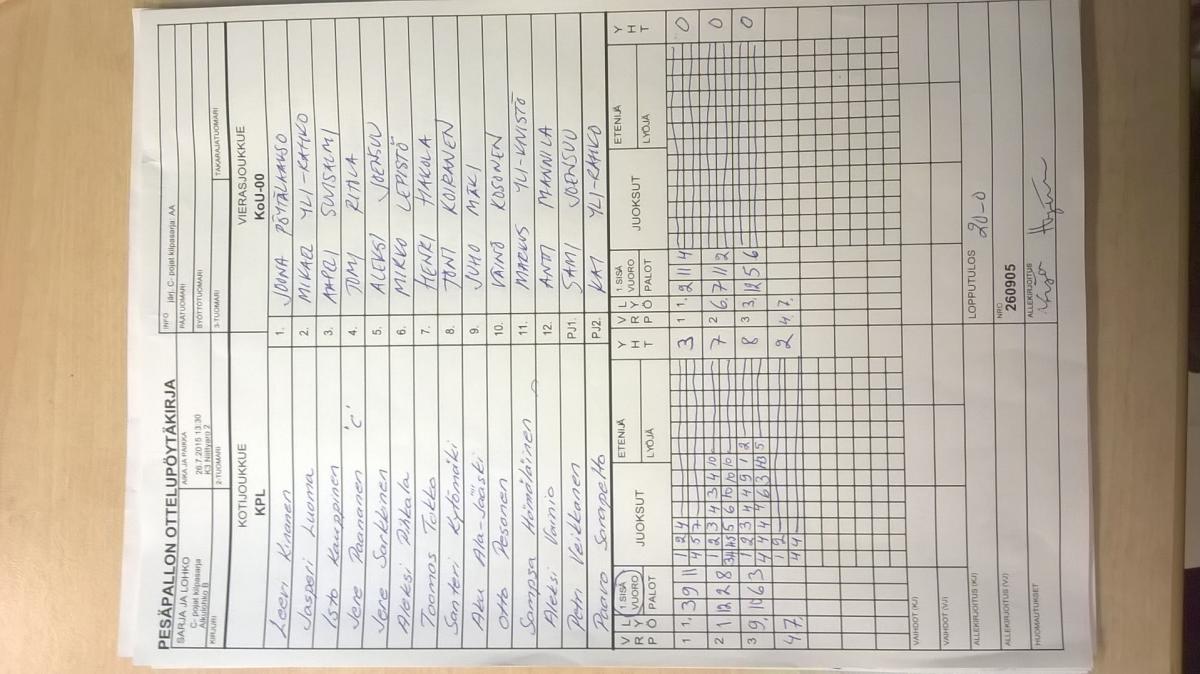 PESÄPALLON OTTELUPÖYTÄKIRJA
SARJA JA LOHKO
C- pojat kilpasarja
Alkulohko B
AIKA JA PAIKKA
26.7.2015 13:30
K3 Niittyarp 2
INFO järj. C- pojat kilpasarja: AA
PÄÄTUOMARI
SYÖTTÖTUOMARI
KIRJURI
2-TUOMARI
3-TUOMARI
TAKARAJATUOMARI
KOTIJOUKKUE
KPL
VIERASJOUKKUE
KoU-00
Leevi Kinanen 1. JOONA PÖYTÄLAAKSO
Jasperi Luoma 2. MIKAEL YLI-RAHKO
Iisto Kauppinen 3. AAPELI SUVISALMI
Jere Paananen 'C' 4. TOMI RITOLA
Jere Sarkkinen 5. ALEKSI JOENSUU
Aleksi Pihkala 6. MIRKO LEPISTÖ
Toomas Tokko 7. HENRI HAKOLA
Santeri Kytömäki 8. TONI KOIRANEN
Aku Ala-Jääski 9. JUHO MÄKI
Otto Pesonen 10. VÄINÖ KOSONEN
Sampsa Hämäläinen 11. MARKUS YLI-KIVISTÖ
Aleksi Vainio 12. ANTI MANNILA
Petri Veikkanen PJ1. SAMI JOENSUU
Paavo PJ2. KAI YLI-RAHKO
V P L Y R Ö 1.SISÄ VUORO PALOT JUOKSUT ETENIJÄ LYÖJÄ Y H T V P L Y R Ö 1.SISÄ VUORO PALOT JUOKSUT ETENIJÄ LYÖJÄ Y H T
1 1, 3 9 11 1 2 4 3 1 1, 2 11 4 0
4 5 7
2 1 12 2 8 1 2 3 4 3 4 10 7 2 6, 7 11 2 0
3 9, 10 6 3 1 2 3 4 4 9 1 2 8 3 3, 12 5 6 0
4 7, 1 2 2 4 7,
4 4
VAIHDOT (KJ)
VAIHDOT (VJ)
LOPPUTULOS 20-0
ALLEKIRJOITUS (KJ)
NRO
260905
ALLEKIRJOITUS (VJ)
ALLEKIRJOITUS
HUOMAUTUKSET